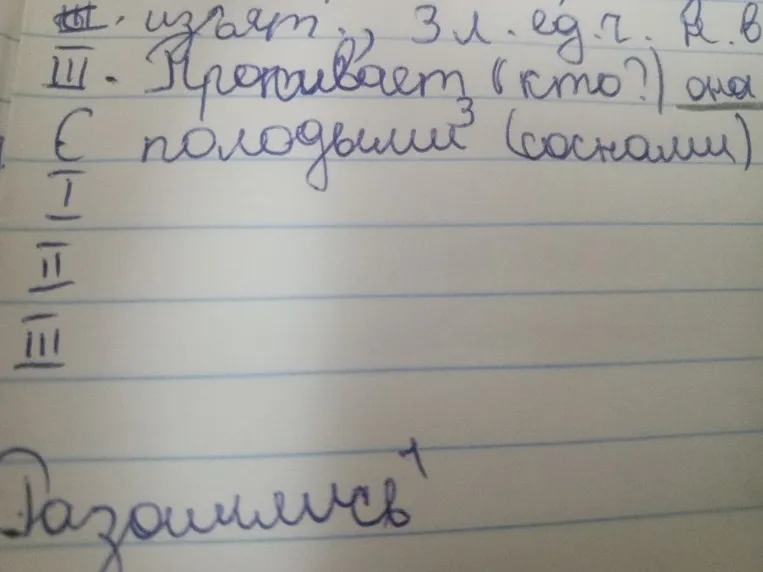 III. изъят., 3 л. ед. ч. н. в
III. Проживает (кто?) она
С молодыми³ (соснами)
I
II
III
Разошлись¹